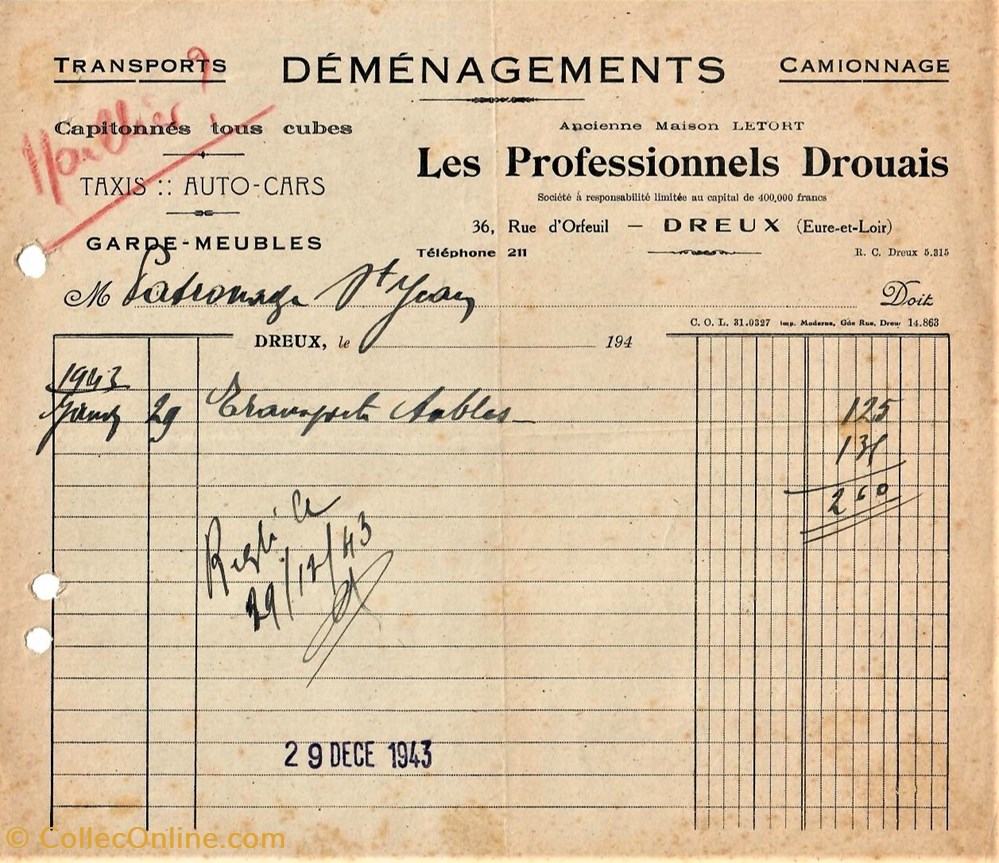 TRANSPORTS DÉMÉNAGEMENTS CAMIONNAGE
Capitonnés tous cubes
TAXIS :: AUTO-CARS
GARDE-MEUBLES
Ancienne Maison LETORT
Les Professionnels Drouais
Société à responsabilité limitée au capital de 400,000 francs
36, Rue d'Orfeuil — DREUX (Eure-et-Loir)
Téléphone 211 R. C. Dreux 5.315
M Patronage St Jean Doit
C. O. L. 31.0327 Imp. Moderne, Gde Rue, Dreux 14.863
DREUX, le 194
1943
29 Transports 125
260
29/12/43
29 DECE 1943
© CollecOnline.com